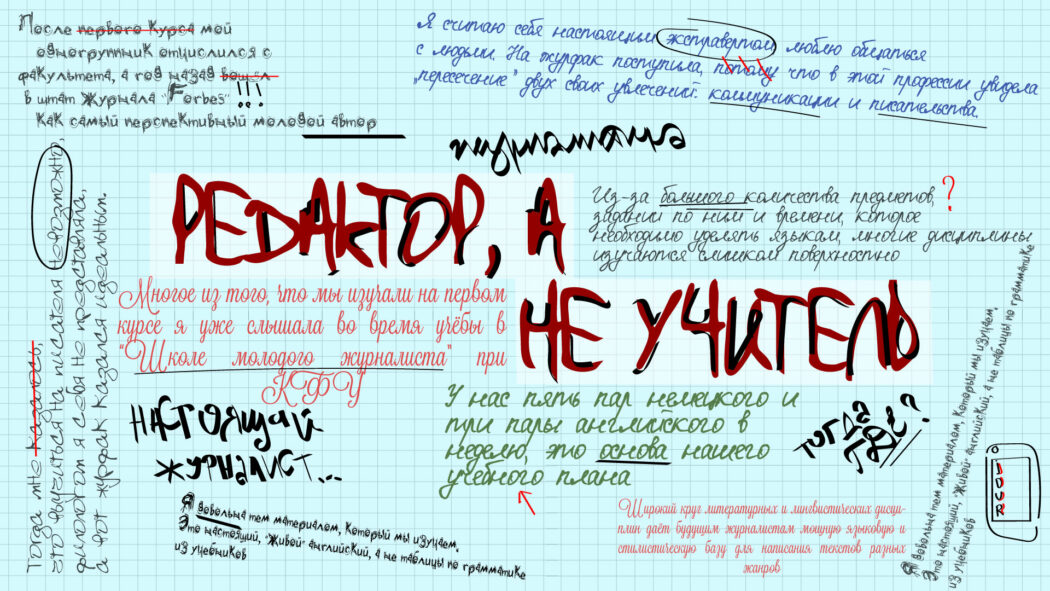 После первого курса мой
одногруппник отчислился с
факультета, а год назад вошёл
в штат журнала "Forbes" !!!
как самый перспективный молодой автор
Я считаю себя настоящим экстравертом, люблю общаться
с людьми. На журфак поступила, потому что в этой профессии увидела
„пересечение” двух своих увлечений: коммуникации и писательства.
РЕДАКТОР, А
НЕ УЧИТЕЛЬ
Из-за большого количества предметов, ?
заданий по ним и времени, которое
необходимо уделять языкам, многие дисциплины
изучаются слишком поверхностно
Тогда мне казалось,
что выучиться на писателя невозможно,
филологом я себя не представляла,
а вот журфак казался идеальным.
Многое из того, что мы изучали на первом
курсе я уже слышала во время учёбы в
“Школе молодого журналиста” при
КФУ
НАСТОЯЩИЙ
ЖУРНАЛИСТ...
У нас пять пар немецкого и
три пары английского в
неделю, это основа нашего
учебного плана
ТОГДА
ГДЕ?
Я довольна тем материалом, который мы изучаем.
Это настоящий, "живой" английский, а не таблицы по грамматике
из учебников
Широкий круг литературных и лингвистических дисци-
плин даёт будущим журналистам мощную языковую и
стилистическую базу для написания текстов разных
жанров
Я довольна тем материалом, который мы изучаем.
Это настоящий, "живой" английский, а не таблицы по грамматике
из учебников